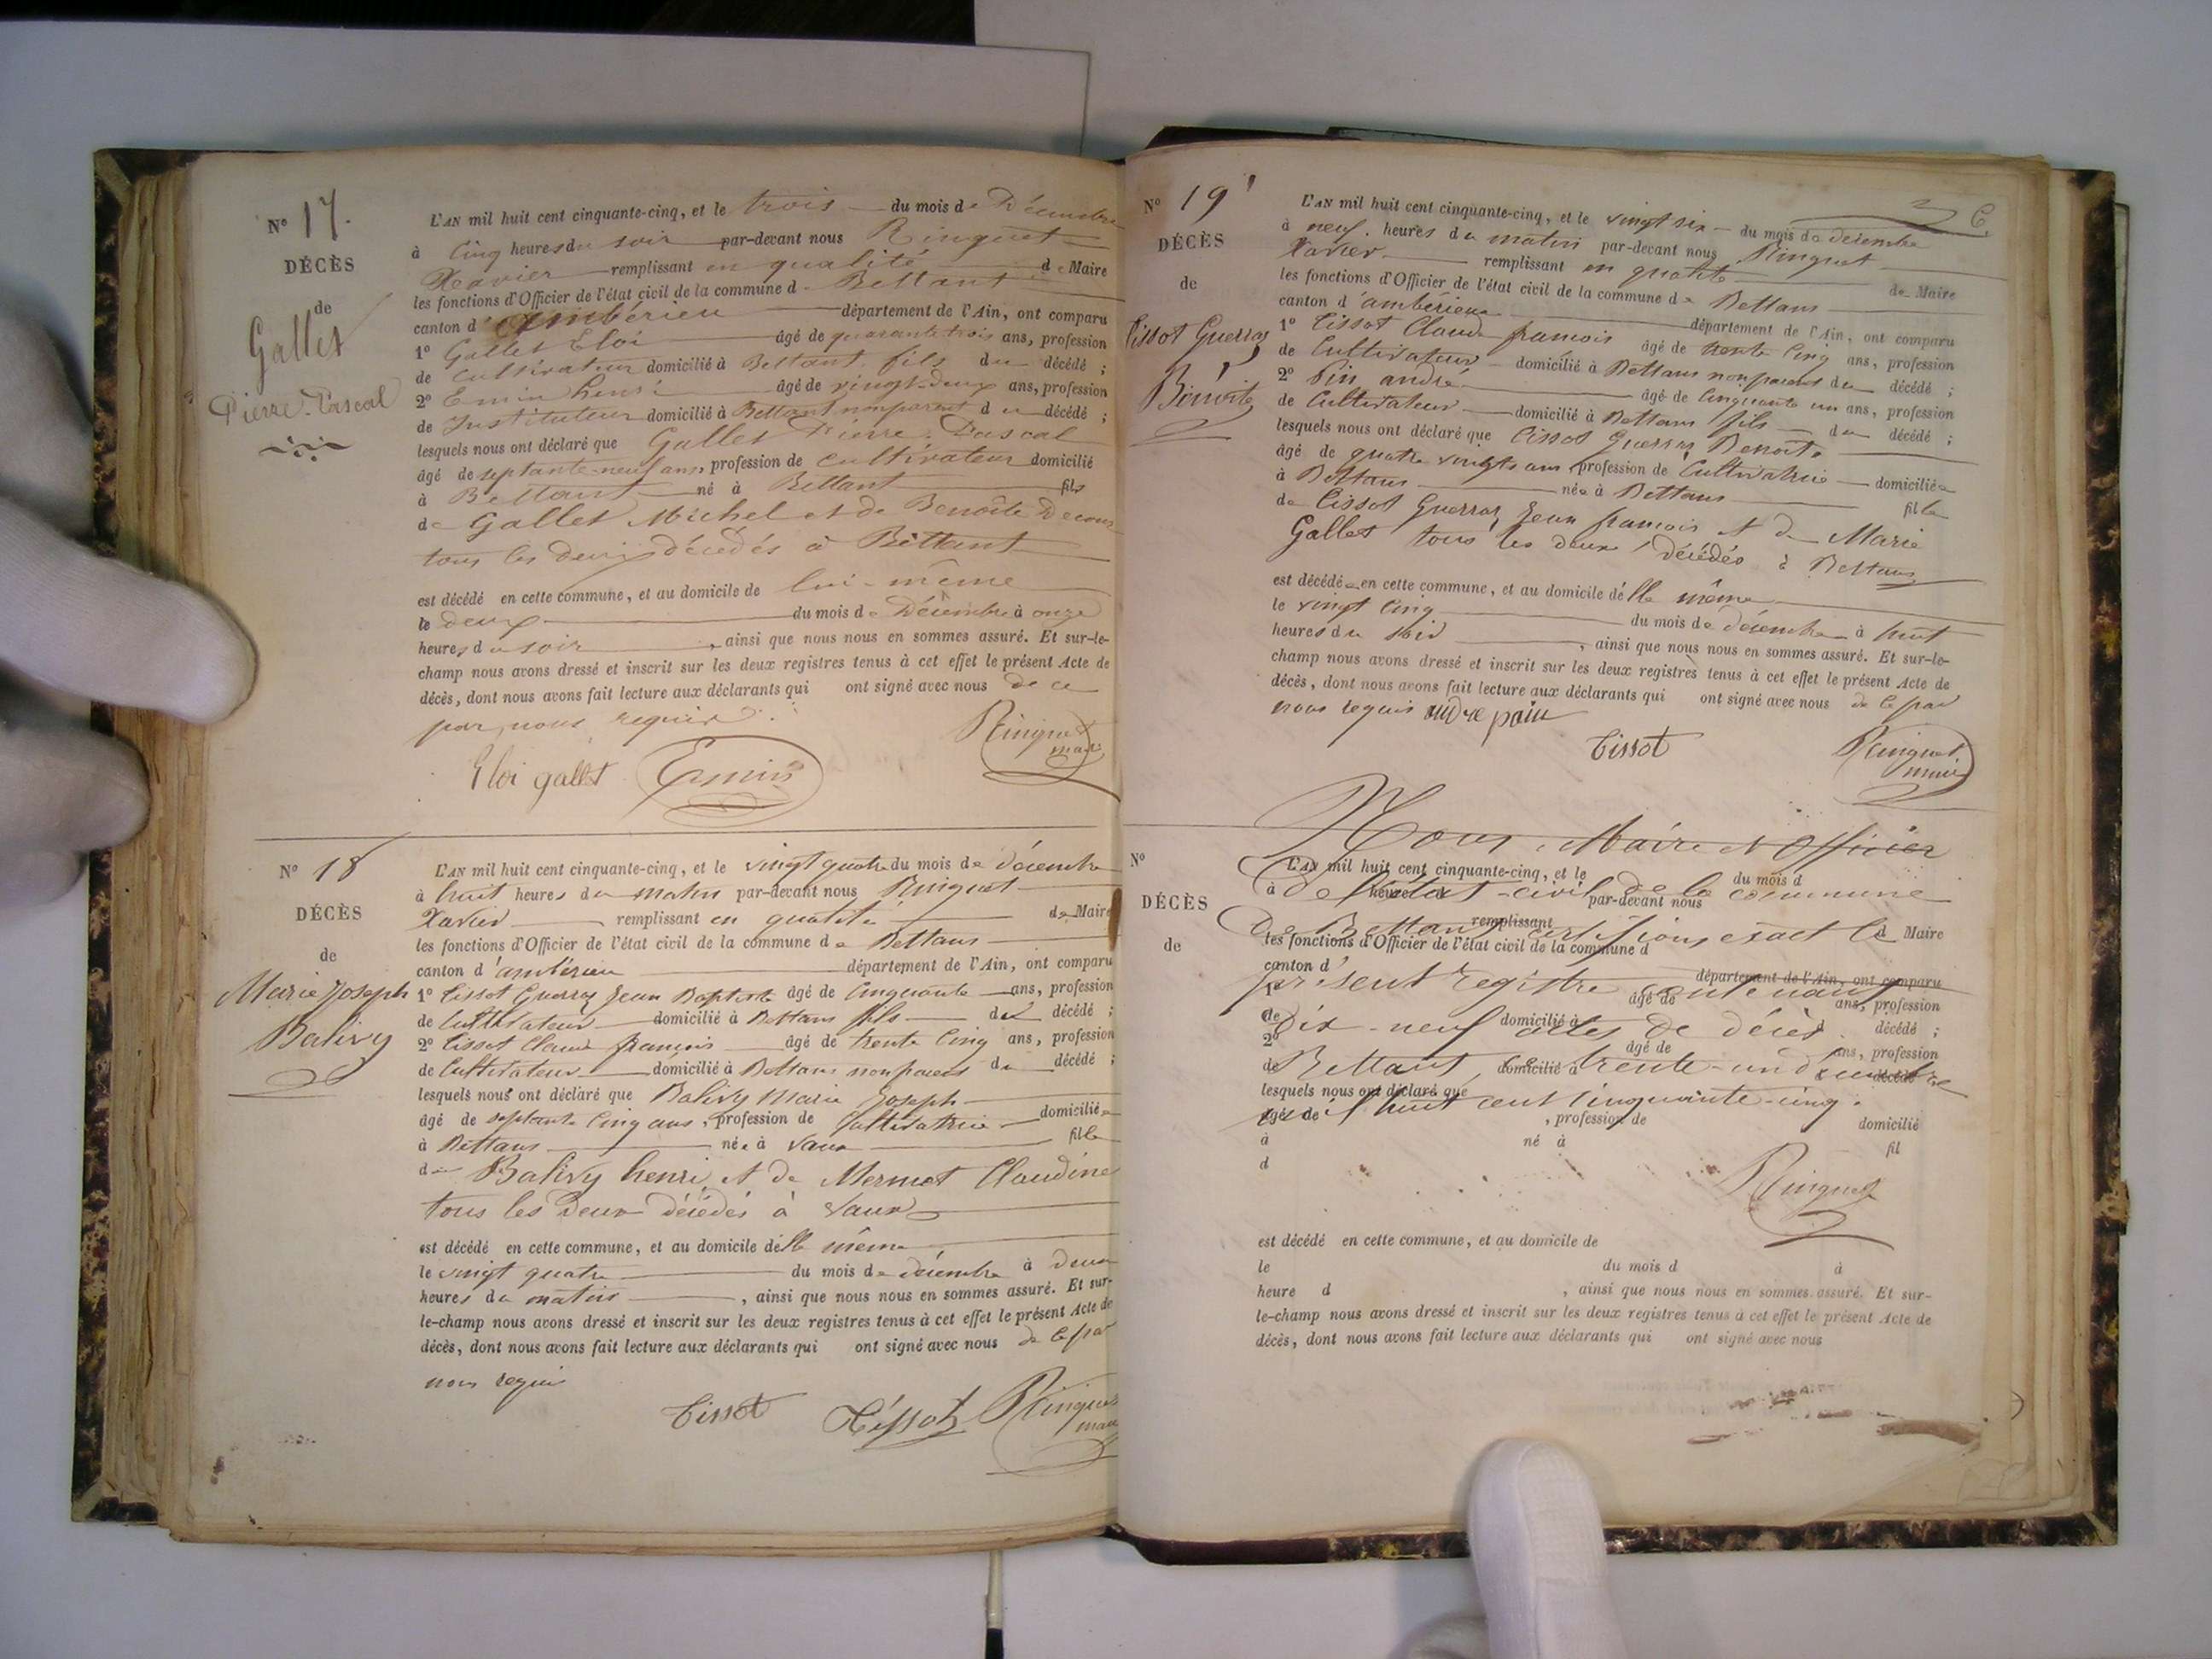 N° 17.
DÉCÈS
de
Gallet
Pierre-Pascal
L'AN mil huit cent cinquante-cinq, et le trois du mois de Décembre
à cinq heures du soir par-devant nous Ringuet
Xavier remplissant en qualité de Maire
les fonctions d'Officier de l'état civil de la commune d Bettant
canton d'Ambérieu département de l'Ain, ont comparu
1° Gallet Eloi âgé de quarante trois ans, profession
de cultivateur domicilié à Bettant fils du décédé ;
2° Emin henri âgé de vingt-deux ans, profession
de Instituteur domicilié à Bettant non parent du décédé ;
lesquels nous ont déclaré que Gallet Pierre-Pascal
âgé de septante-neuf ans, profession de cultivateur domicilié
à Bettant né à Bettant fils
de Gallet Michel et de Benoîte
tous les deux décédés à Bettant
est décédé en cette commune, et au domicile de lui-même
le deux du mois de Décembre à onze
heures du soir, ainsi que nous nous en sommes assuré. Et sur-le-
champ nous avons dressé et inscrit sur les deux registres tenus à cet effet le présent Acte de
décès, dont nous avons fait lecture aux déclarants qui ont signé avec nous de ce
par nous requis.
Eloi gallet Emin Ringuet
maire
N° 18
DÉCÈS
de
Marie Joseph
Balivy
L'AN mil huit cent cinquante-cinq, et le vingt quatre du mois de décembre
à huit heures du matin par-devant nous Ringuet
Xavier remplissant en qualité de Maire
les fonctions d'Officier de l'état civil de la commune de Bettans
canton d'ambérieu département de l'Ain, ont comparu
1° Tissot Guerraz Jean Baptiste âgé de Cinquante ans, profession
de Cultivateur domicilié à Bettans fils du décédé ;
2° Tissot Claude françois âgé de trente Cinq ans, profession
de Cultivateur domicilié à Bettans non parens du décédé ;
lesquels nous ont déclaré que Balivy Marie Joseph
âgé de septante Cinq ans, profession de Cultivatrice domiciliée
à Bettans née à Vaux fille
de Balivy henri et de Mermet Claudine
tous les deux décédés à Vaux
est décédé en cette commune, et au domicile delle même
le vingt quatre du mois de décembre à deux
heures du matin, ainsi que nous nous en sommes assuré. Et sur-
le-champ nous avons dressé et inscrit sur les deux registres tenus à cet effet le présent Acte de
décès, dont nous avons fait lecture aux déclarants qui ont signé avec nous de Ce par
nous requis
Tissot Tissot Ringuet
maire
N° 19
DÉCÈS
de
Tissot Guerraz
Benoite
L'AN mil huit cent cinquante-cinq, et le vingt six du mois de décembre
à neuf heures du matin par-devant nous Ringuet
Xavier remplissant en qualité de Maire
les fonctions d'Officier de l'état civil de la commune de Bettans
canton d'ambérieux département de l'Ain, ont comparu
1° Tissot Claude françois âgé de trente Cinq ans, profession
de Cultivateur domicilié à Bettans non parens du décédé ;
2° Pin andré âgé de Cinquante un ans, profession
de Cultivateur domicilié à Bettans fils du décédé ;
lesquels nous ont déclaré que Tissot Guerraz Benoite
âgé de quatre vingts ans, profession de Cultivatrice domiciliée
à Bettans née à Bettans fille
de Tissot Guerraz Jean françois et de Marie
Gallet tous les deux décédés à Bettans
est décédée en cette commune, et au domicile delle même
le vingt Cinq du mois de décembre à huit
heures du soir, ainsi que nous nous en sommes assuré. Et sur-le-
champ nous avons dressé et inscrit sur les deux registres tenus à cet effet le présent Acte de
décès, dont nous avons fait lecture aux déclarants qui ont signé avec nous de Ce par
nous requis
Tissot Ringuet
maire
N°
DÉCÈS
de
Nous, Maire et Officier
L'AN mil huit cent cinquante-cinq, et le du mois d
de l'état-civil de la commune
à heure d par-devant nous
remplissant d Maire
de Bettant certifions exact le
les fonctions d'Officier de l'état civil de la commune d
canton d' département de l'Ain, ont comparu
présent registre contenant
1° âgé de ans, profession
de domicilié à d décédé ;
dix-neuf actes de décès.
2° âgé de ans, profession
de domicilié à d décédé
Bettant, le trente-un décembre
lesquels nous ont déclaré que
mil huit cent cinquante-cinq.
âgé de , profession de domicilié
à né à fil
d
Ringuet
est décédé en cette commune, et au domicile de
le du mois d à
heure d , ainsi que nous nous en sommes assuré. Et sur-
le-champ nous avons dressé et inscrit sur les deux registres tenus à cet effet le présent Acte de
décès, dont nous avons fait lecture aux déclarants qui ont signé avec nous